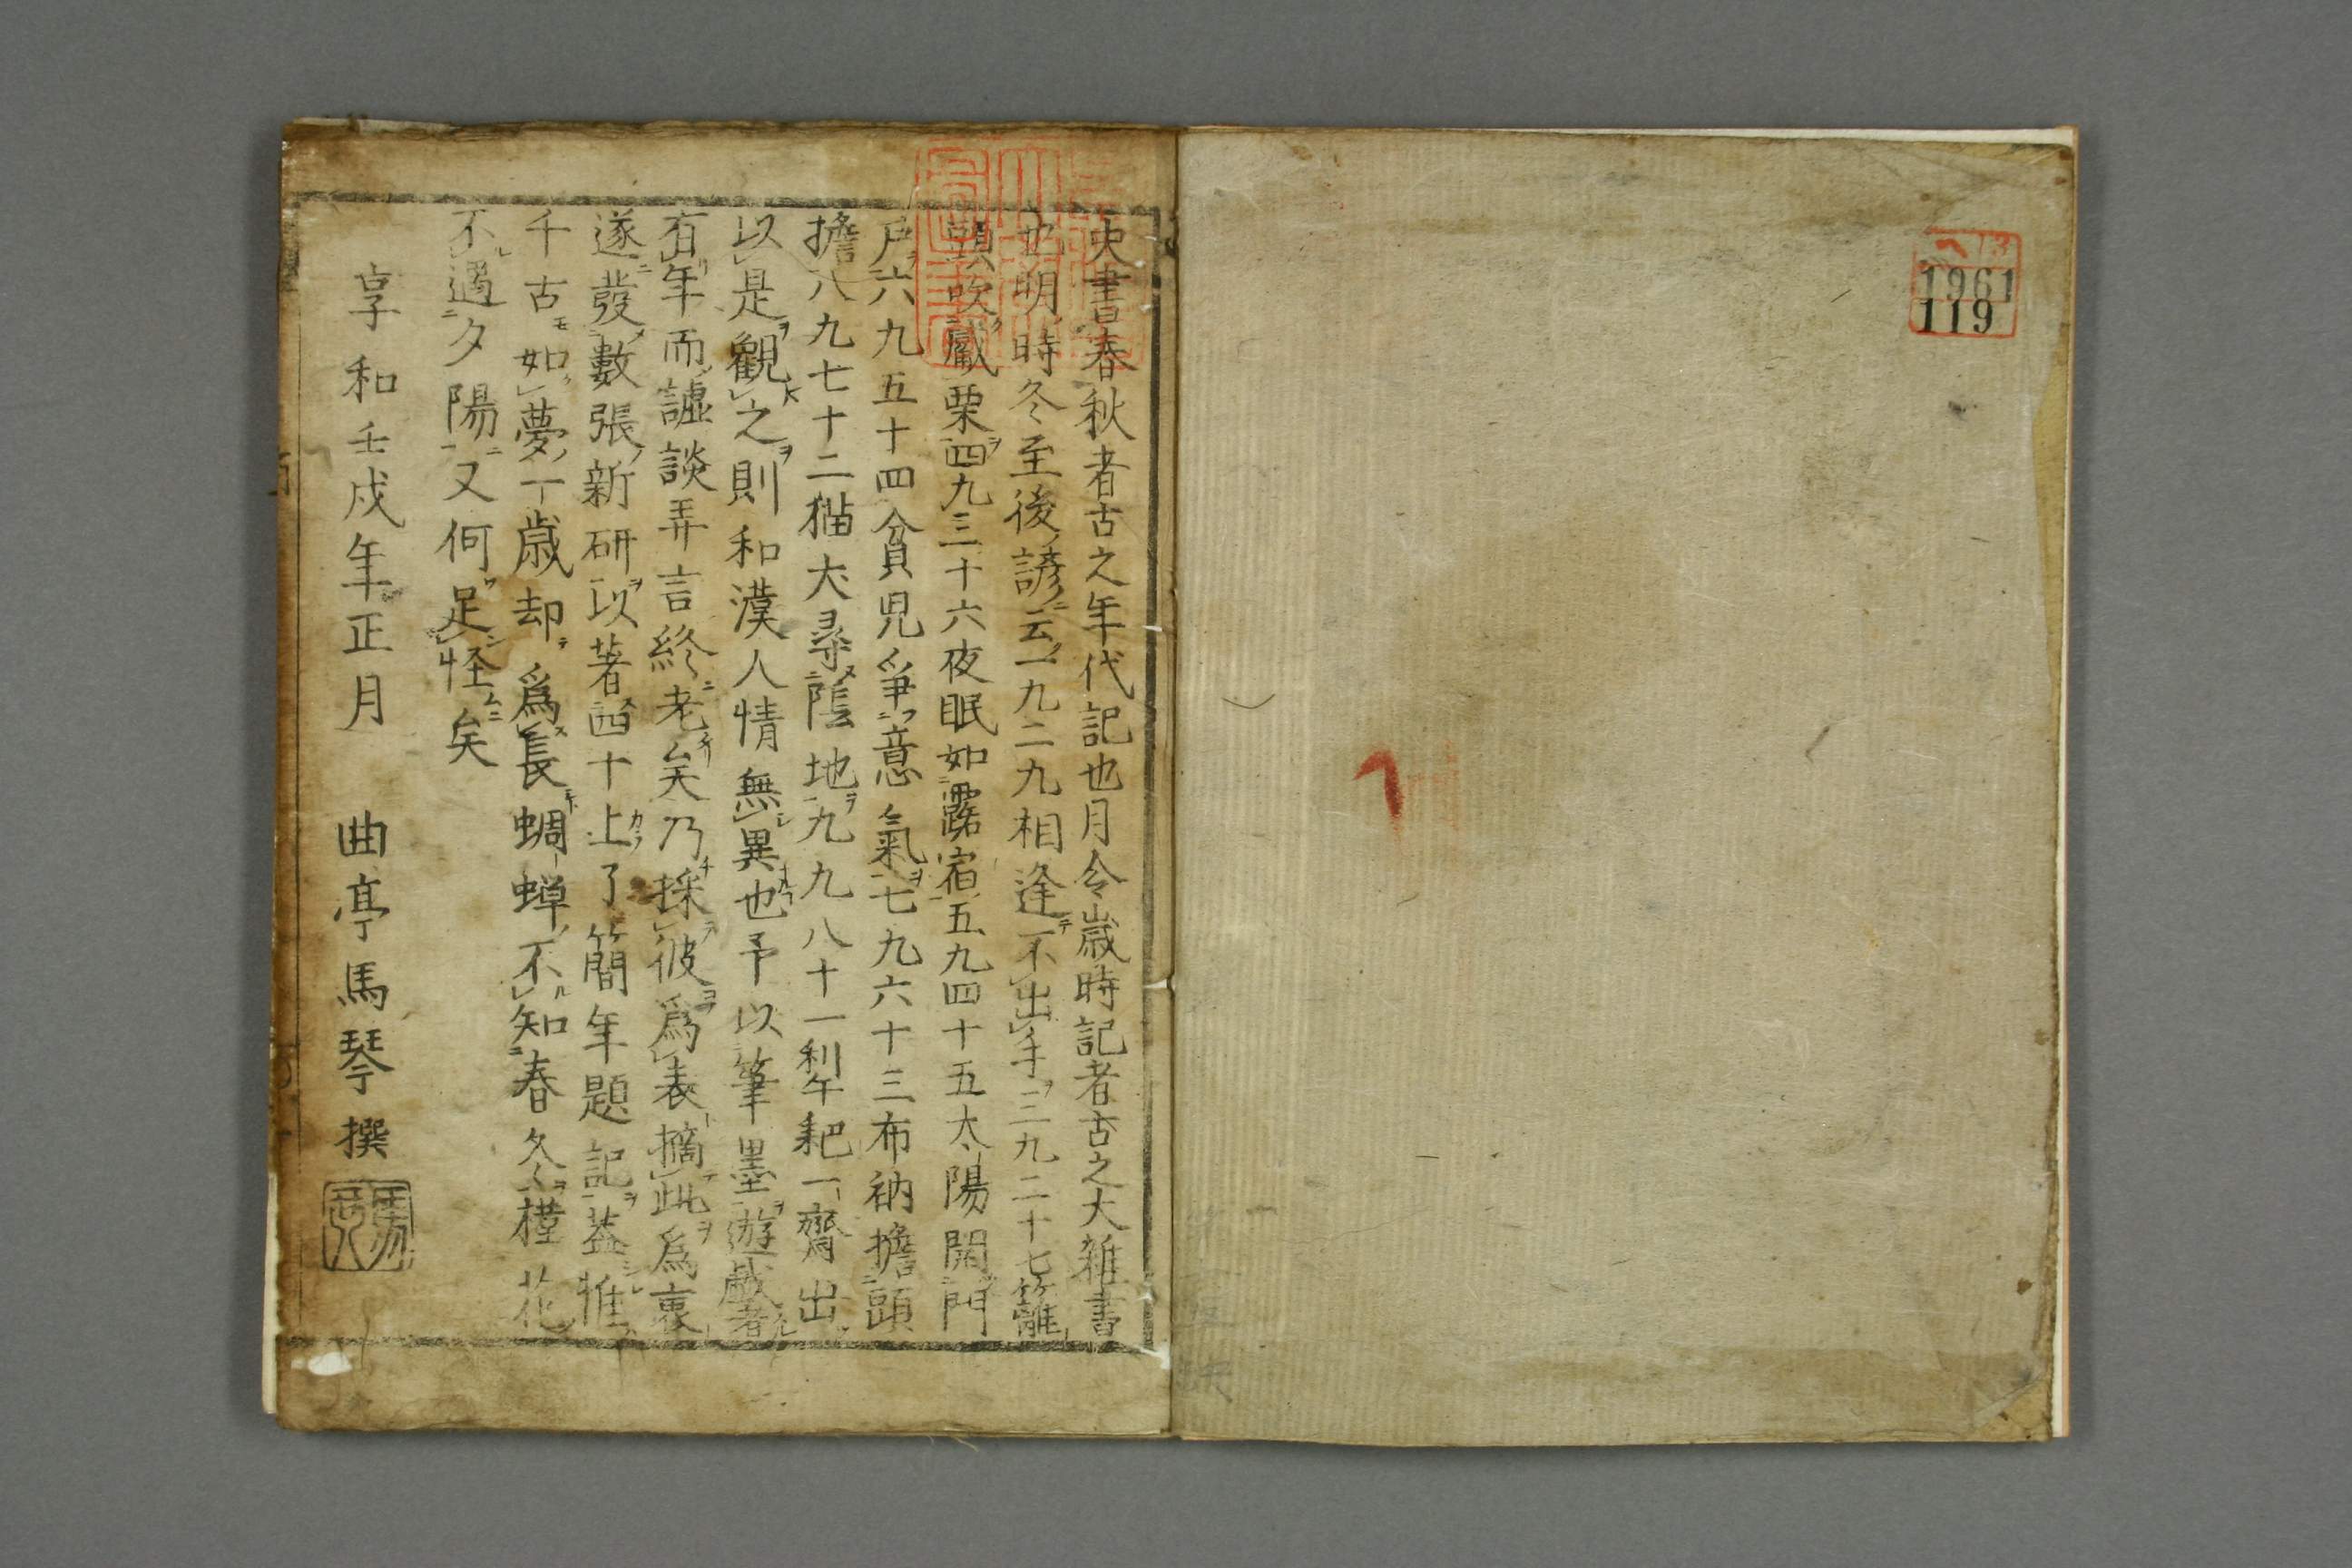 へ13
1961
119
史書春秋者古之年代記也月令歳時記者古之大雑書
也明時冬至後諺云一九二九相逢不出手三九二十七籬
頭吹觱栗四九三十六夜眠如露宿五九四十五太陽開門
戸六九五十四貧児爭意氣七九六十三布衲擔頭
擔八九七十二猫犬尋蔭地九九八十一犁耙一齊出
以是觀之則和漢人情無異也予以筆墨遊戯者
有年而譃談弄言終老矣乃採彼為表摘此為裏
遂發數張新研以著四十上了簡年題記蓋惟
千古如夢一歳却為長蜩蝉不知春冬槿花
不過夕陽又何足怪矣
享和壬戌年正月　曲亭馬琴撰